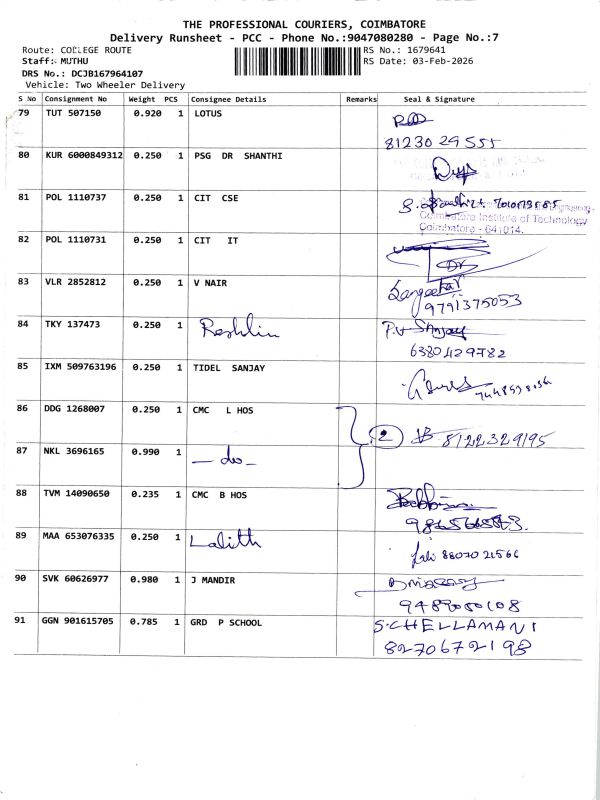 THE PROFESSIONAL COURIERS, COIMBATORE
Delivery Runsheet - PCC - Phone No.:9047080280 - Page No.:7
Route: COLLEGE ROUTE
RS No.: 1679641
Staff: MUTHU
RS Date: 03-Feb-2026
DRS No.: DCJB167964107
Vehicle: Two Wheeler Delivery
S No Consignment No Weight PCS Consignee Details Remarks Seal & Signature
79 TUT 507150 0.920 1 LOTUS
8123029555
80 KUR 6000849312 0.250 1 PSG DR SHANTHI
81 POL 1110737 0.250 1 CIT CSE
Coimbatore Institute of Technology
Coimbatore - 641014.
82 POL 1110731 0.250 1 CIT IT
83 VLR 2852812 0.250 1 V NAIR
9791375053
84 TKY 137473 0.250 1 Reshlin P.V Sanjay
6380429782
85 IXM 509763196 0.250 1 TIDEL SANJAY
86 DDG 1268007 0.250 1 CMC L HOS
2 8122329195
87 NKL 3696165 0.990 1 — do —
88 TVM 14090650 0.235 1 CMC B HOS
89 MAA 653076335 0.250 1 Lalith
88070 21566
90 SVK 60626977 0.980 1 J MANDIR
9489080108
91 GGN 901615705 0.785 1 GRD P SCHOOL S.CHELLAMANI
8270672198